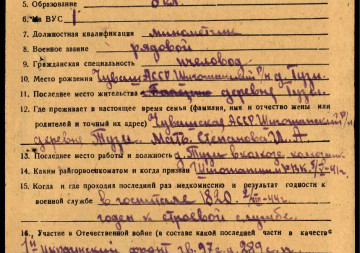 5. Образование 6 кл.
6. № ВУС 1
7. Должностная квалификация минометчик
8. Военное звание рядовой
9. Гражданская специальность пчеловод
10. Место рождения Чуваш АССР р-н д. Тузи.
11. Последнее место жительства деревне Тузи
12. Где проживает в настоящее время семья (фамилия, имя и отчество жены или
родителей и точный их адрес) Чувашская АССР
деревне Тузи. Мать. Степанова И. А
13. Последнее место работы и должность д. Тузи в колхозе
14. Каким райгорвоенкоматом и когда призван
15. Когда и где проходил последний раз медкомиссию и результат годности к
военной службе в госпитале 1820
годен к строевой службе.
16. Участие в Отечественной войне (в составе какой последней части в качестве
1й Украинский фронт гв. 97 с.д. 289 с.п.